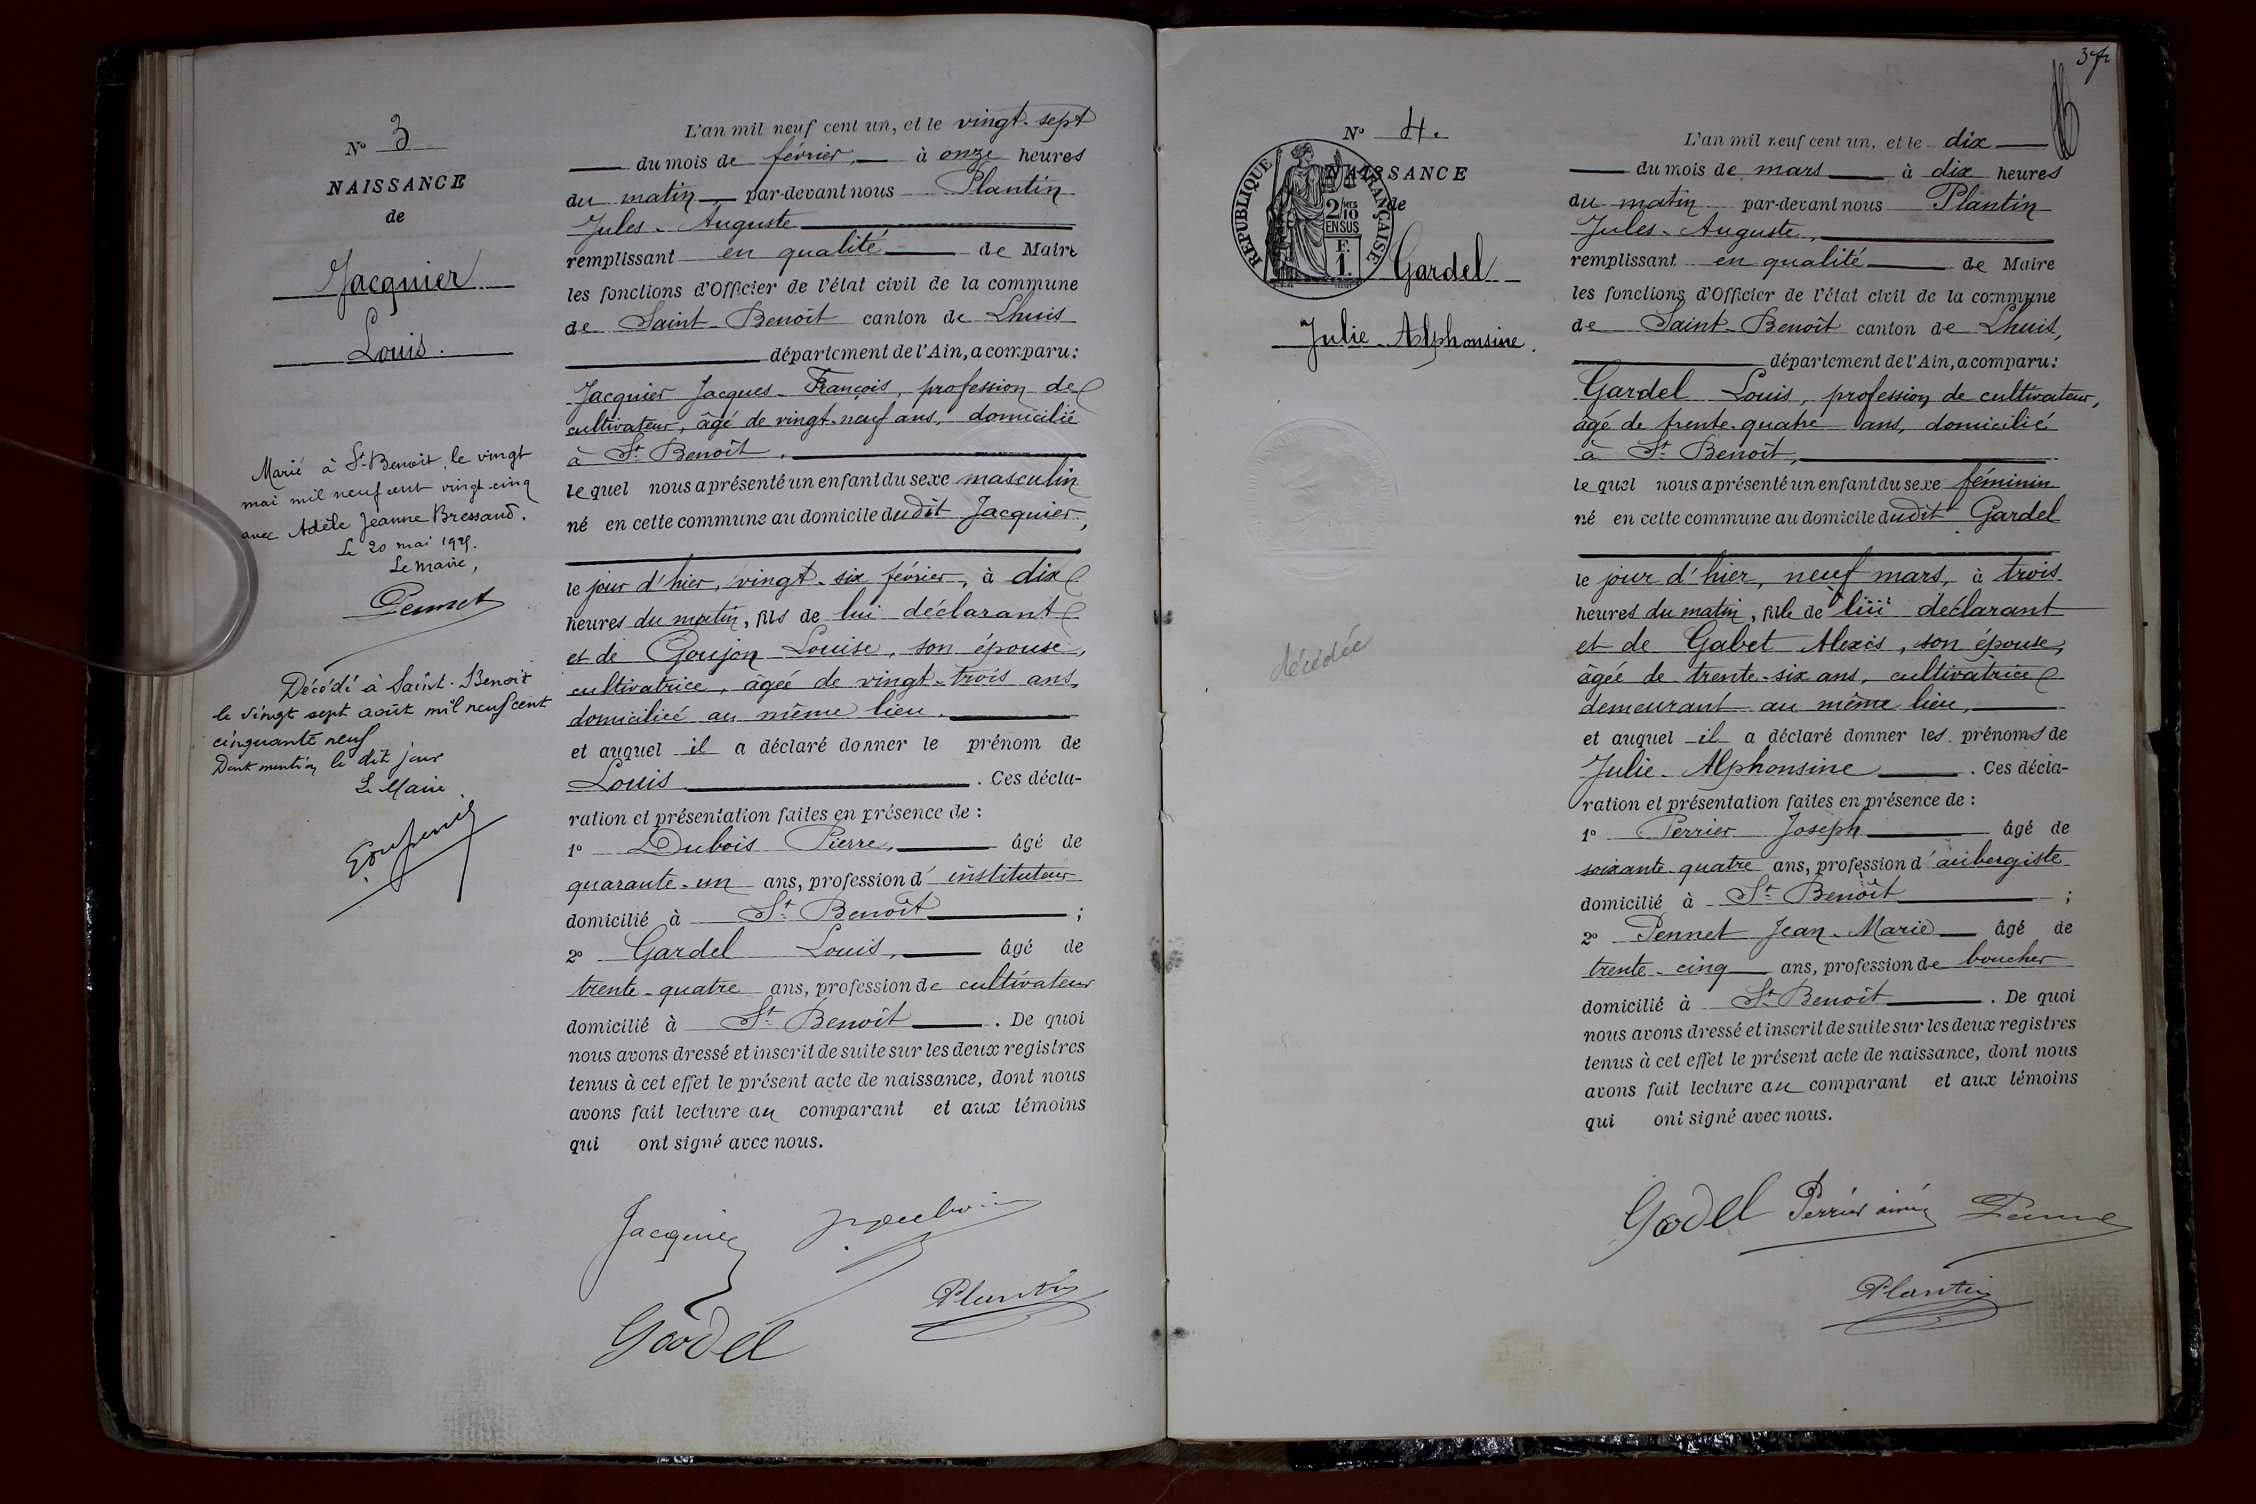 N° 3
NAISSANCE
de
Jacquier
Louis.
Marié à St-Benoit, le vingt
mai mil neuf cent vingt-cinq
avec Adèle Jeanne Bressand.
Le 20 mai 1925.
Le maire,
Pennet
Décédé à Saint-Benoit
le vingt sept août mil neuf cent
cinquante neuf
Dont mention le dit jour
Le Maire
L'an mil neuf cent un, et le vingt-sept
du mois de février, à onze heures
du matin par-devant nous Plantin
Jules-Auguste
remplissant en qualité de Maire
les fonctions d'Officier de l'état civil de la commune
de Saint-Benoît canton de Lhuis
département de l'Ain, a comparu:
Jacquier Jacques-François, profession de
cultivateur, âgé de vingt-neuf ans, domicilié
à St Benoît,
lequel nous a présenté un enfant du sexe masculin
né en cette commune au domicile dudit Jacquier,
le jour d'hier, vingt-six février, à dix
heures du matin, fils de lui déclarant
et de Goujon Louise, son épouse,
cultivatrice, âgée de vingt-trois ans,
domiciliée au même lieu.
et auquel il a déclaré donner le prénom de
Louis. Ces décla-
ration et présentation faites en présence de :
1° Dubois Pierre, âgé de
quarante-un ans, profession d'instituteur
domicilié à St Benoît ;
2° Gardel Louis, âgé de
trente-quatre ans, profession de cultivateur
domicilié à St Benoît. De quoi
nous avons dressé et inscrit de suite sur les deux registres
tenus à cet effet le présent acte de naissance, dont nous
avons fait lecture au comparant et aux témoins
qui ont signé avec nous.
Jacquier
Gardel
Plantin
N° 4.
NAISSANCE
de
REPUBLIQUE FRANÇAISE
2/10 MES
EN SUS
F.
1.
Gardel
Julie-Alphonsine.
décédée
L'an mil neuf cent un, et le dix
du mois de mars à dix heures
du matin par-devant nous Plantin
Jules-Auguste,
remplissant en qualité de Maire
les fonctions d'Officier de l'état civil de la commune
de Saint-Benoît canton de Lhuis,
département de l'Ain, a comparu:
Gardel Louis, profession de cultivateur,
âgé de trente-quatre ans, domicilié
à St Benoît,
lequel nous a présenté un enfant du sexe féminin
né en cette commune au domicile dudit Gardel
le jour d'hier, neuf mars, à trois
heures du matin, fille de lui déclarant
et de Gabet Alexis, son épouse,
âgée de trente-six ans, cultivatrice
demeurant au même lieu,
et auquel il a déclaré donner les prénoms de
Julie-Alphonsine. Ces décla-
ration et présentation faites en présence de :
1° Perrier Joseph âgé de
soixante quatre ans, profession d'aubergiste
domicilié à St Benoît ;
2° Pennet Jean-Marie âgé de
trente-cinq ans, profession de boucher
domicilié à St Benoît. De quoi
nous avons dressé et inscrit de suite sur les deux registres
tenus à cet effet le présent acte de naissance, dont nous
avons fait lecture au comparant et aux témoins
qui ont signé avec nous.
Gardel Perrier aîné Pennet
Plantin